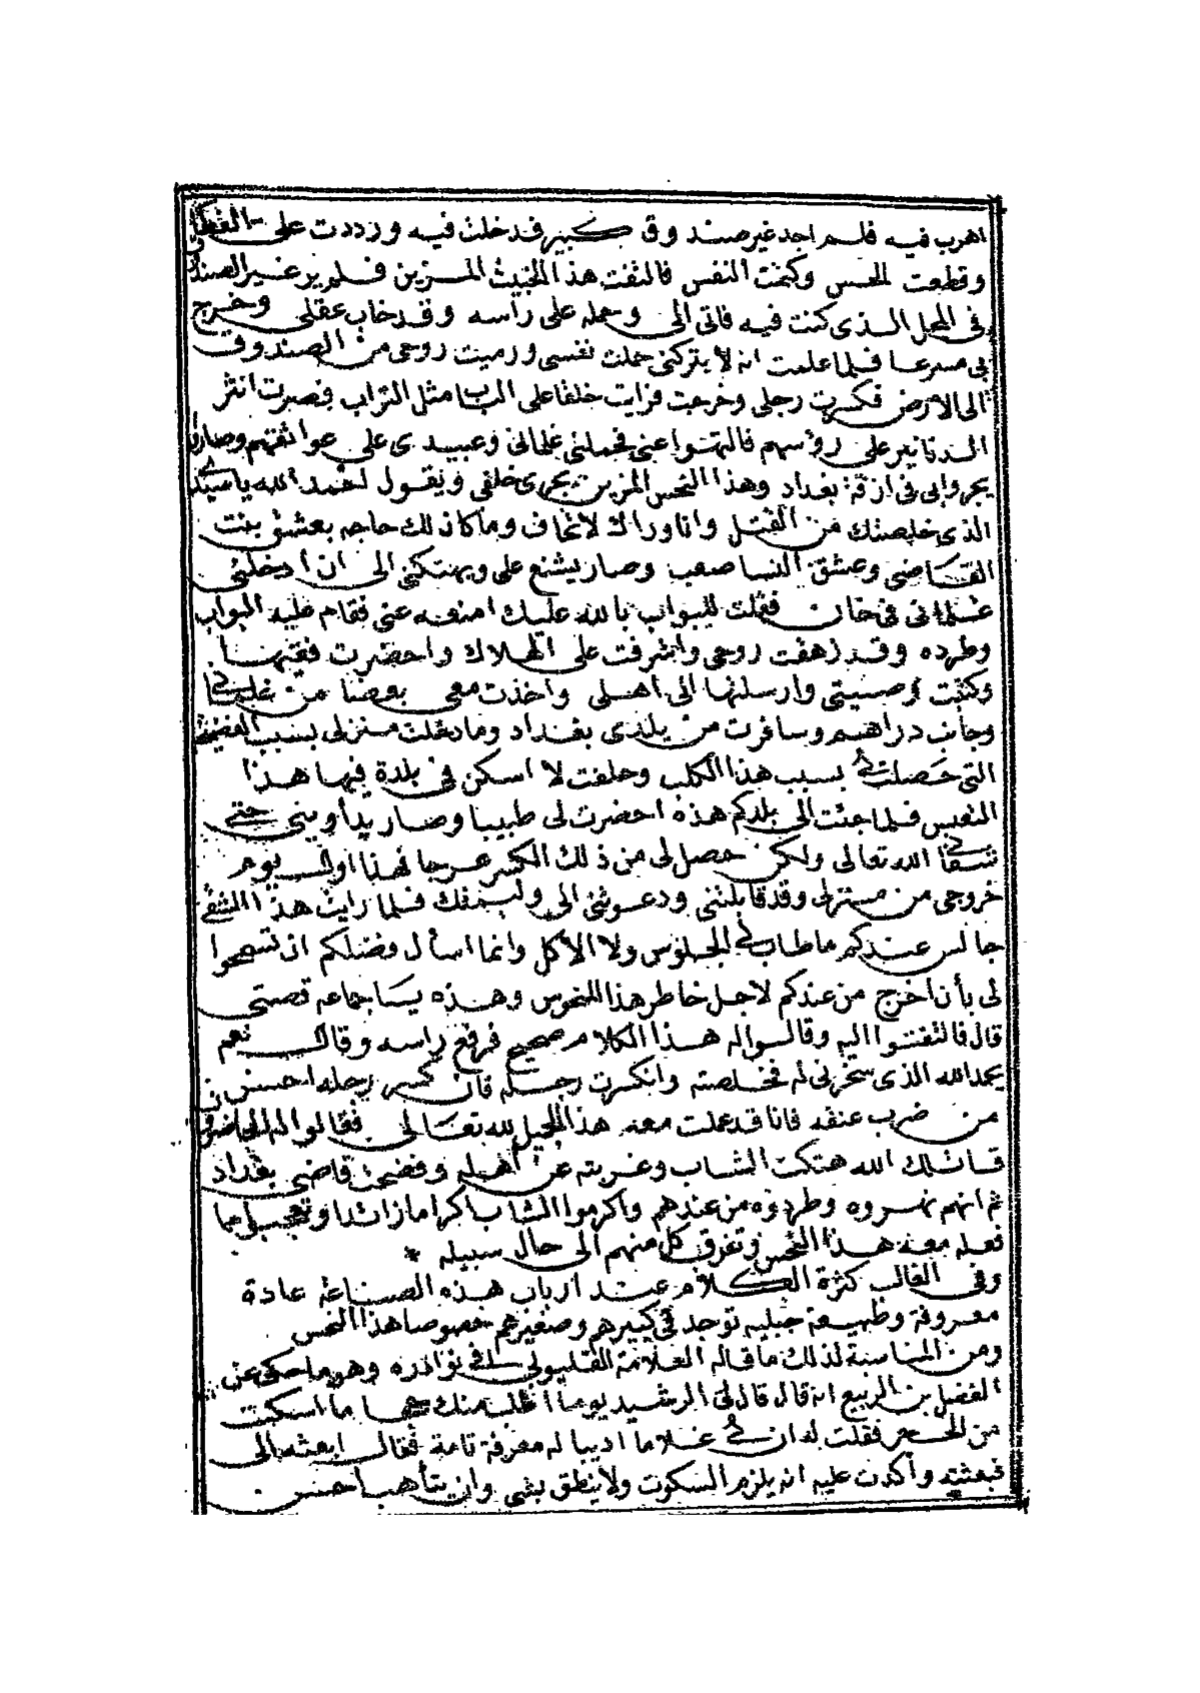 اهرب فيه فلم اجد غير صندوق كبير فدخلت فيه ورددت على الغطا
وقطعت الحس وكتمت النفس فالتفت هذا الخبيث المزين فلم ير غير الصندوق
في المحل الذي كنت فيه فاتى الى وحمله على راسه وقد خاب عقلي وخرج
بي مسرعا فلما علمت انه لا يتركني حملت نفسي ورميت روحي من الصندوق
الى الارض فكسرت رجلي وخرجت فرايت خلقا على الباب مثل التراب فصرت انثر
الدنانير على رؤسهم فالتهوا عني فحملني غلماني وعبيدي على عواتقهم وصاروا
يجروا بي في ازقة بغداد وهذا النحس المزين يجري خلفي ويقول احمد الله يا سيدي
الذي خلصتك من القتل وانا وراك لا تخاف وما كان لك حاجه بعشق بنت
القاضي وعشق النسا صعب وصار يشنع على ويهتكني الى ان ادخلني
غلماني في خان فقلت للبواب بالله عليك امنعه عني فقام عليه البواب
وطرده وقد زهقت روحي واشرفت على الهلاك واحضرت فقيها
وكتبت وصيتي وارسلتها الى اهلي واخذت معي بعضا من غلماني
وجانب دراهم وسافرت من بلدي بغداد وما دخلت منزلي بسبب الفضيحة
التي حصلت لي بسبب هذا الكلب وحلفت لا اسكن في بلدة فيها هذا
المنعس فلما جئت الى بلدكم هذه احضرت لي طبيبا وصار يداويني حتى
شفا لي الله تعالى ولكن حصل لي من ذلك الكسر عرجا فهذا اول يوم
خروجي من منزلي وقد قابلتني ودعوتني الى وليمتك فلما رايت هذا الشقي
جالس عندكم ما طاب لي الجلوس ولا الاكل وانما اسأل فضلكم ان تسمحوا
لي بأن اخرج من عندكم لاجل خاطر هذا المنحوس وهذه يا جماعه قصتي
قال فالتفتوا اليه وقالوا له هذا الكلام صحيح فرفع راسه وقال نعم
بحمد الله الذي سخرني له فخلصته وانكسرت رجله فان كسر رجله احسن
من ضرب عنقه فانا قد عملت معه هذا الجميل لله تعالى فقالوا له الحاضرون
قاتلك الله هتكت الشاب وغربته عن أهله وفضحت قاضي بغداد
ثم انهم نهروه وطردوه من عندهم واكرموا الشاب اكراما زائدا وتعجبوا مما
فعله معه هذا النحس وتفرق كل منهم الى حال سبيله *
وفي الغالب كثرة الكلام عند ارباب هذه الصناعة عادة
معروفة وطبيعة جبليه توجد في كبيرهم وصغيرهم خصوصا هذا النحس
ومن المناسبة لذلك ما قاله العلامة القليوبي في نوادره وهو ما حكى عن
الفضل بن الربيع انه قال قال لي الرشيد يوما اطلب منك حجاما اسكت
من الحجر فقلت له ان لي غلاما اديبا له معرفة تامة فقال ابعثه الى
فبعثته واكدت عليه انه يلزم السكوت ولا ينطق بشي وان يتأهب احسن